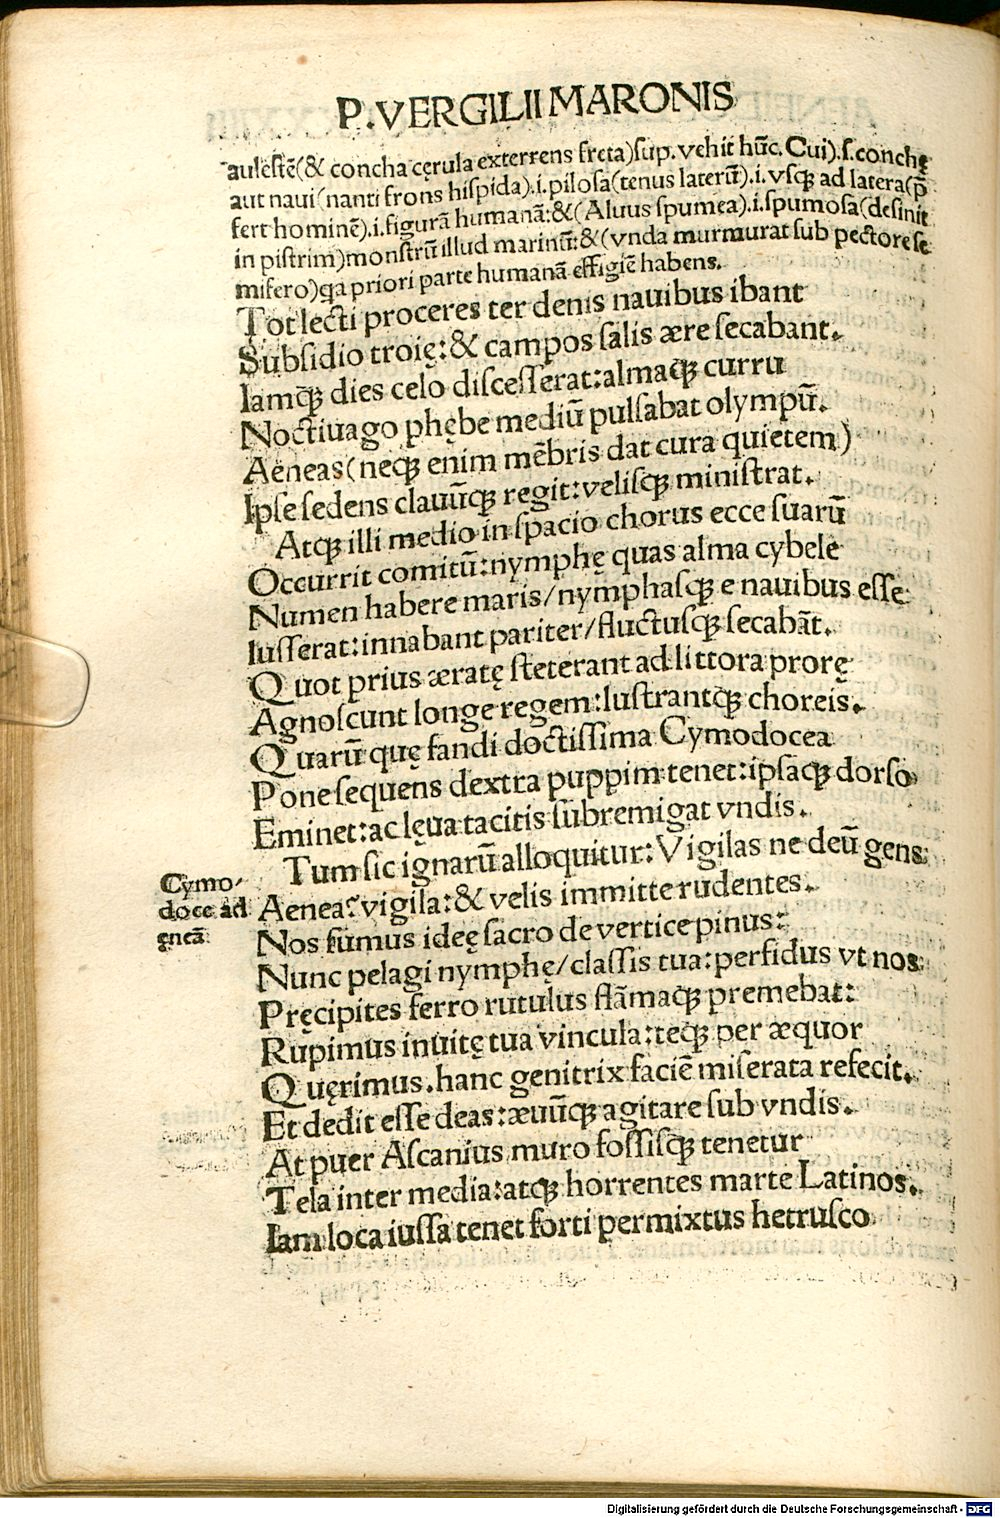 P.VERGILII MARONIS
aulestē(& concha cęrula exterrens freta)sup. vehit hūc. Cui).ſ.conchę
aut naui(nanti frons hiſpida).i.piloſa(tenus laterū).i.vſqꝫ ad latera(p̄
fert hominē).i.figurā humanā:&(Aluus ſpumea).i.ſpumoſa(deſinit
in piſtrim)monſtrū illud marinū:&(vnda murmurat ſub pectore ſe
mifero)qa priori parte humanā effigiē habens.
Tot lecti proceres ter denis nauibus ibant
Subſidio troię:& campos ſalis ære ſecabant.
Iamqꝫ dies celo diſceſſerat:almaqꝫ curru
Noctiuago phębe mediū pulſabat olympū.
Aeneas(neqꝫ enim mēbris dat cura quietem)
Ipſe ſedens clauūqꝫ regit:veliſqꝫ miniſtrat.
Atqꝫ illi medio in ſpacio chorus ecce ſuarū
Occurrit comitū:nymphę quas alma cybele
Numen habere maris/nymphaſqꝫ e nauibus eſſe
Iuſſerat:innabant pariter/fluctuſqꝫ ſecabāt.
Quot prius æratę ſteterant ad littora prorę
Agnoſcunt longe regem:luſtrantqꝫ choreis.
Quarū quę fandi doctiſſima Cymodocea
Pone ſequens dextra puppim tenet:ipſaqꝫ dorſo
Eminet:ac lęua tacitis ſubremigat vndis.
Tum ſic ignarū alloquitur:Vigilas ne deū gens
Cymo-
doce ad
ęneā
Aenea?vigila:& velis immitte rudentes.
Nos ſumus ideę ſacro de vertice pinus:
Nunc pelagi nymphę/claſſis tua:perfidus vt nos
Pręcipites ferro rutulus flāmaqꝫ premebat:
Rupimus inuitę tua vincula:teqꝫ per æquor
Quęrimus.hanc genitrix faciē miſerata refecit.
Et dedit eſſe deas:æuūqꝫ agitare ſub vndis.
At puer Aſcanius muro foſſiſqꝫ tenetur
Tela inter media:atqꝫ horrentes marte Latinos.
Iam loca iuſſa tenet forti permixtus hetruſco
Digitalisierung gefördert durch die Deutsche Forschungsgemeinschaft - DFG